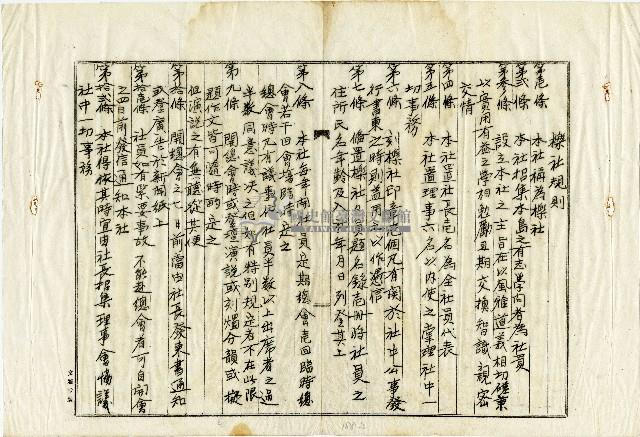 櫟社規則
第壱條 本社稱為櫟社
第貳條 本社招集本島之有志學問者為社員
第參條 設立本社之主旨在以風雅道義相切磋兼
以實用有益之學相勉勵且期交換智識親密
交情
第四條 本社置社長壱名為全社員代表
第五條 本社置理事六名以內使之掌理社中一
切事務
第六條 刻櫟社印章壱個凡有關於社中公事發
行書柬之時則蓋用之以作憑信
第七條 備置櫟社題名錄壱冊將社員之
住所氏名年齡及入社年月日列登其上
第八條 本社每年開社員定期總會壱回臨時總
會若干回會場臨時定之
總會時凡有議事件以社員半數以上出席者之過
半數同意議決之但有特別規定者不在此限
第九條 開總會時或登壇演說或刻燭分韻或擬
題作文皆可隨時酌定之
但演說之有無聽從其便
第拾條 開總會之七日前當由社長發柬書通知
或登廣告於新聞紙上
第拾壱條 社員如有緊要事故不能赴總會者可自開會
之四日前發信通知本社
第拾貳條 本社得依其時宜由社長招集理事會協議
社中一切事務